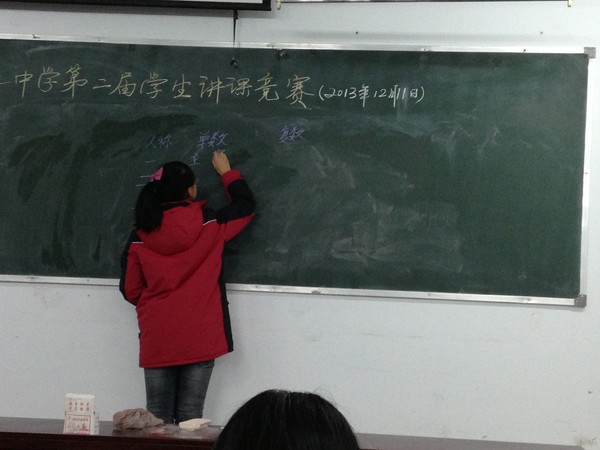 中学第二届学生讲课竞赛(2013年12月11日)
人称 单数 复数
一 主
二